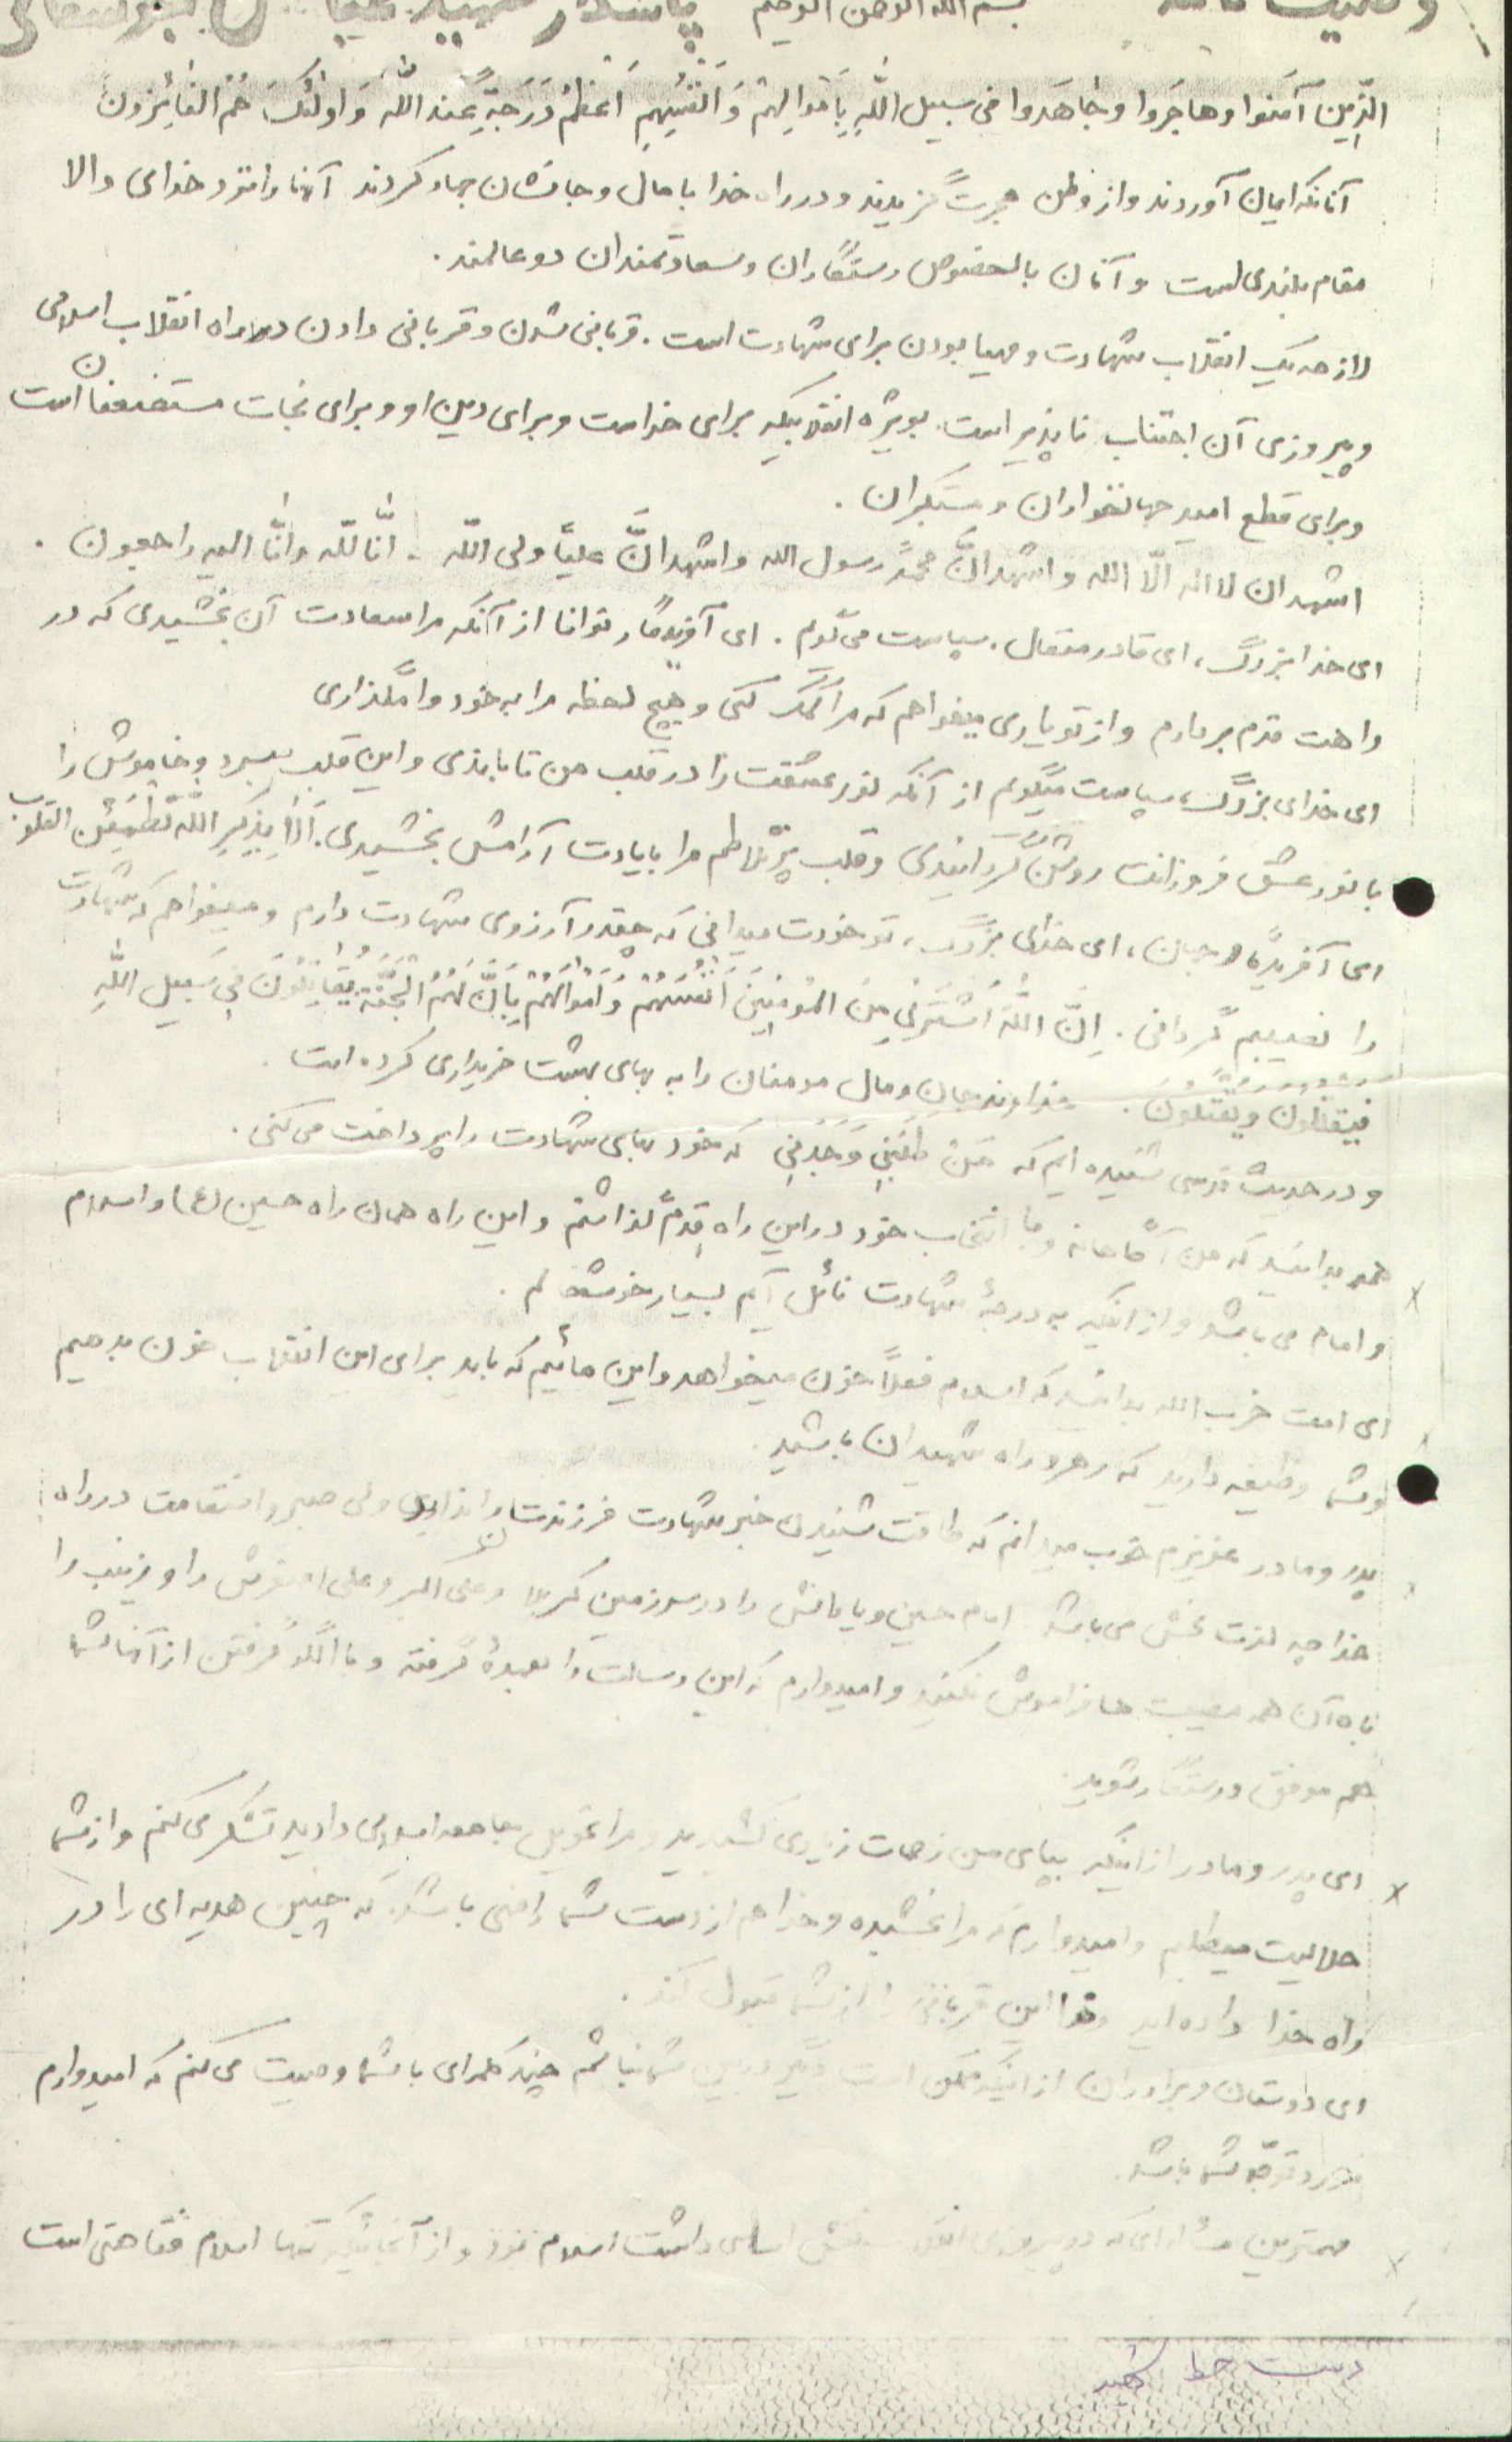 بسم الله الرحمن الرحیم پاسدار شهید
الَّذینَ آمَنوا وهاجَروا وجٰاهَدوا فی سبیل اللّهِ بِاَموالِهِمْ وَ اَنْفُسِهِم اَعظَمُ دَرَجَةً عِنداللّه وَ اولٰئکَ هُمُ الفٰائِزون
آنانکه ایمان آوردند و از وطن هجرت گزیدند و در راه خدا با مال و جانشان جهاد کردند آنها را نزد خدای والا
مقام بلندی است و آنان بالخصوص رستگاران و سعادتمندان دو عالمند .
لازمه یک انقلاب شهادت و مهیا بودن برای شهادت است . قربانی شدن و قربانی دادن در راه انقلاب اسلامی
و پیروزی آن اجتناب ناپذیر است . بویژه انقلابیکه برای خداست و برای دین او و برای نجات مستضعفان است
و برای قطع امید جهانخواران و مستکبران .
اشهد ان لا اله الّا الله و اشهد انَّ محمدً رسول الله و اشهد انَّ علیاً ولی اللّه - انّا للّه و انّا الیه راجعون .
ای خدا بزرگ ، ای قادر متعال . سپاست می گویم . ای آفریدگار توانا از آنکه مرا سعادت آن بخشیدی که در
راهت قدم بردارم و از تو یاری میخواهم که مرا کمک کنی و هیچ لحظه مرا به خود وا مگذاری
ای خدای بزرگ ، سپاست میگویم از آنکه نور عشقت را در قلب من تابانیدی و این قلب بیسرد و خاموش را
با نور عشق فروزانت روشن گردانیدی و قلب پرتلاطم مرا با یادت آرامش بخشیدی . اَلا بِذِکرِ اللّه تَطمَئِن القلوب
ای آفریده جهان ، ای خدای بزرگ ، تو خودت میدانی که چقدر آرزوی شهادت دارم و میخواهم که شهادت
را نصیبم گردانی . اِنَّ اللّهَ اشْتَریٰ مِنَ المُومِنینَ اَنْفُسَهُمْ وَ اَموالَهُمْ بِاَنَّ لَهُمُ الجَنَّة یُقٰاتِلُونَ فی سَبیل اللّهِ
فَیَقْتُلُونَ وَ یُقْتَلُونَ . خداوند جان و مال مومنان را به بهای بهشت خریداری کرده است .
و در حدیث قدسی شنیده ایم که مَنْ طَلَبَنی وَجَدَنی که خود بهای شهادت را پرداخت می کنی .
همه بدانید که من آگاهانه و با انتخاب خود در این راه قدم گذاشتم و این راه همان راه حسین (ع) و اسلام
و امام می باشد و از اینکه به درجهٔ شهادت نائل آیم بسیار خوشحالم .
ای امت حزب الله بدانید که اسلام فعلاً خون میخواهد و این مائیم که باید برای این انقلاب خون بدهیم
و شما وظیفه دارید که رهرو راه شهیدان باشید .
پدر و مادر عزیزم خوب میدانم که طاقت شنیدن خبر شهادت فرزندتان را ندارید ولی صبر و استقامت در راه
خدا چه لذت بخش می باشد امام حسین و یارانش را در سرزمین کربلا و علی اکبر و علی اصغرش را و زینب را
با آن همه مصیبت ها فراموش نکنید و امیدوارم که این رسالت را بعهدهٔ گرفته و با الگو گرفتن از آنها شما
هم موفق و رستگار شوید .
ای پدر و مادر از اینکه بپای من زحمات زیادی کشیدید و مرا تحویل جامعه اسلامی دادید تشکر می کنم و از شما
حلالیت میطلبم و امیدوارم که مرا بخشیده و خدا هم از دست شما راضی باشد که چنین هدیه ای را در
راه خدا داده اید و خدا این قربانی را از شما قبول کند .
ای دوستان و برادران از اینکه ممکن است دیگر در بین شما نباشم چند کلمه ای با شما وصیت می کنم که امیدوارم
مورد توجّه شما باشد .
مهمترین مسأله ای که در پیروزی انقلاب نقش اساسی داشت اسلام بود و از آنجائیکه تنها اسلام فقاهتی است
دست خط شهید